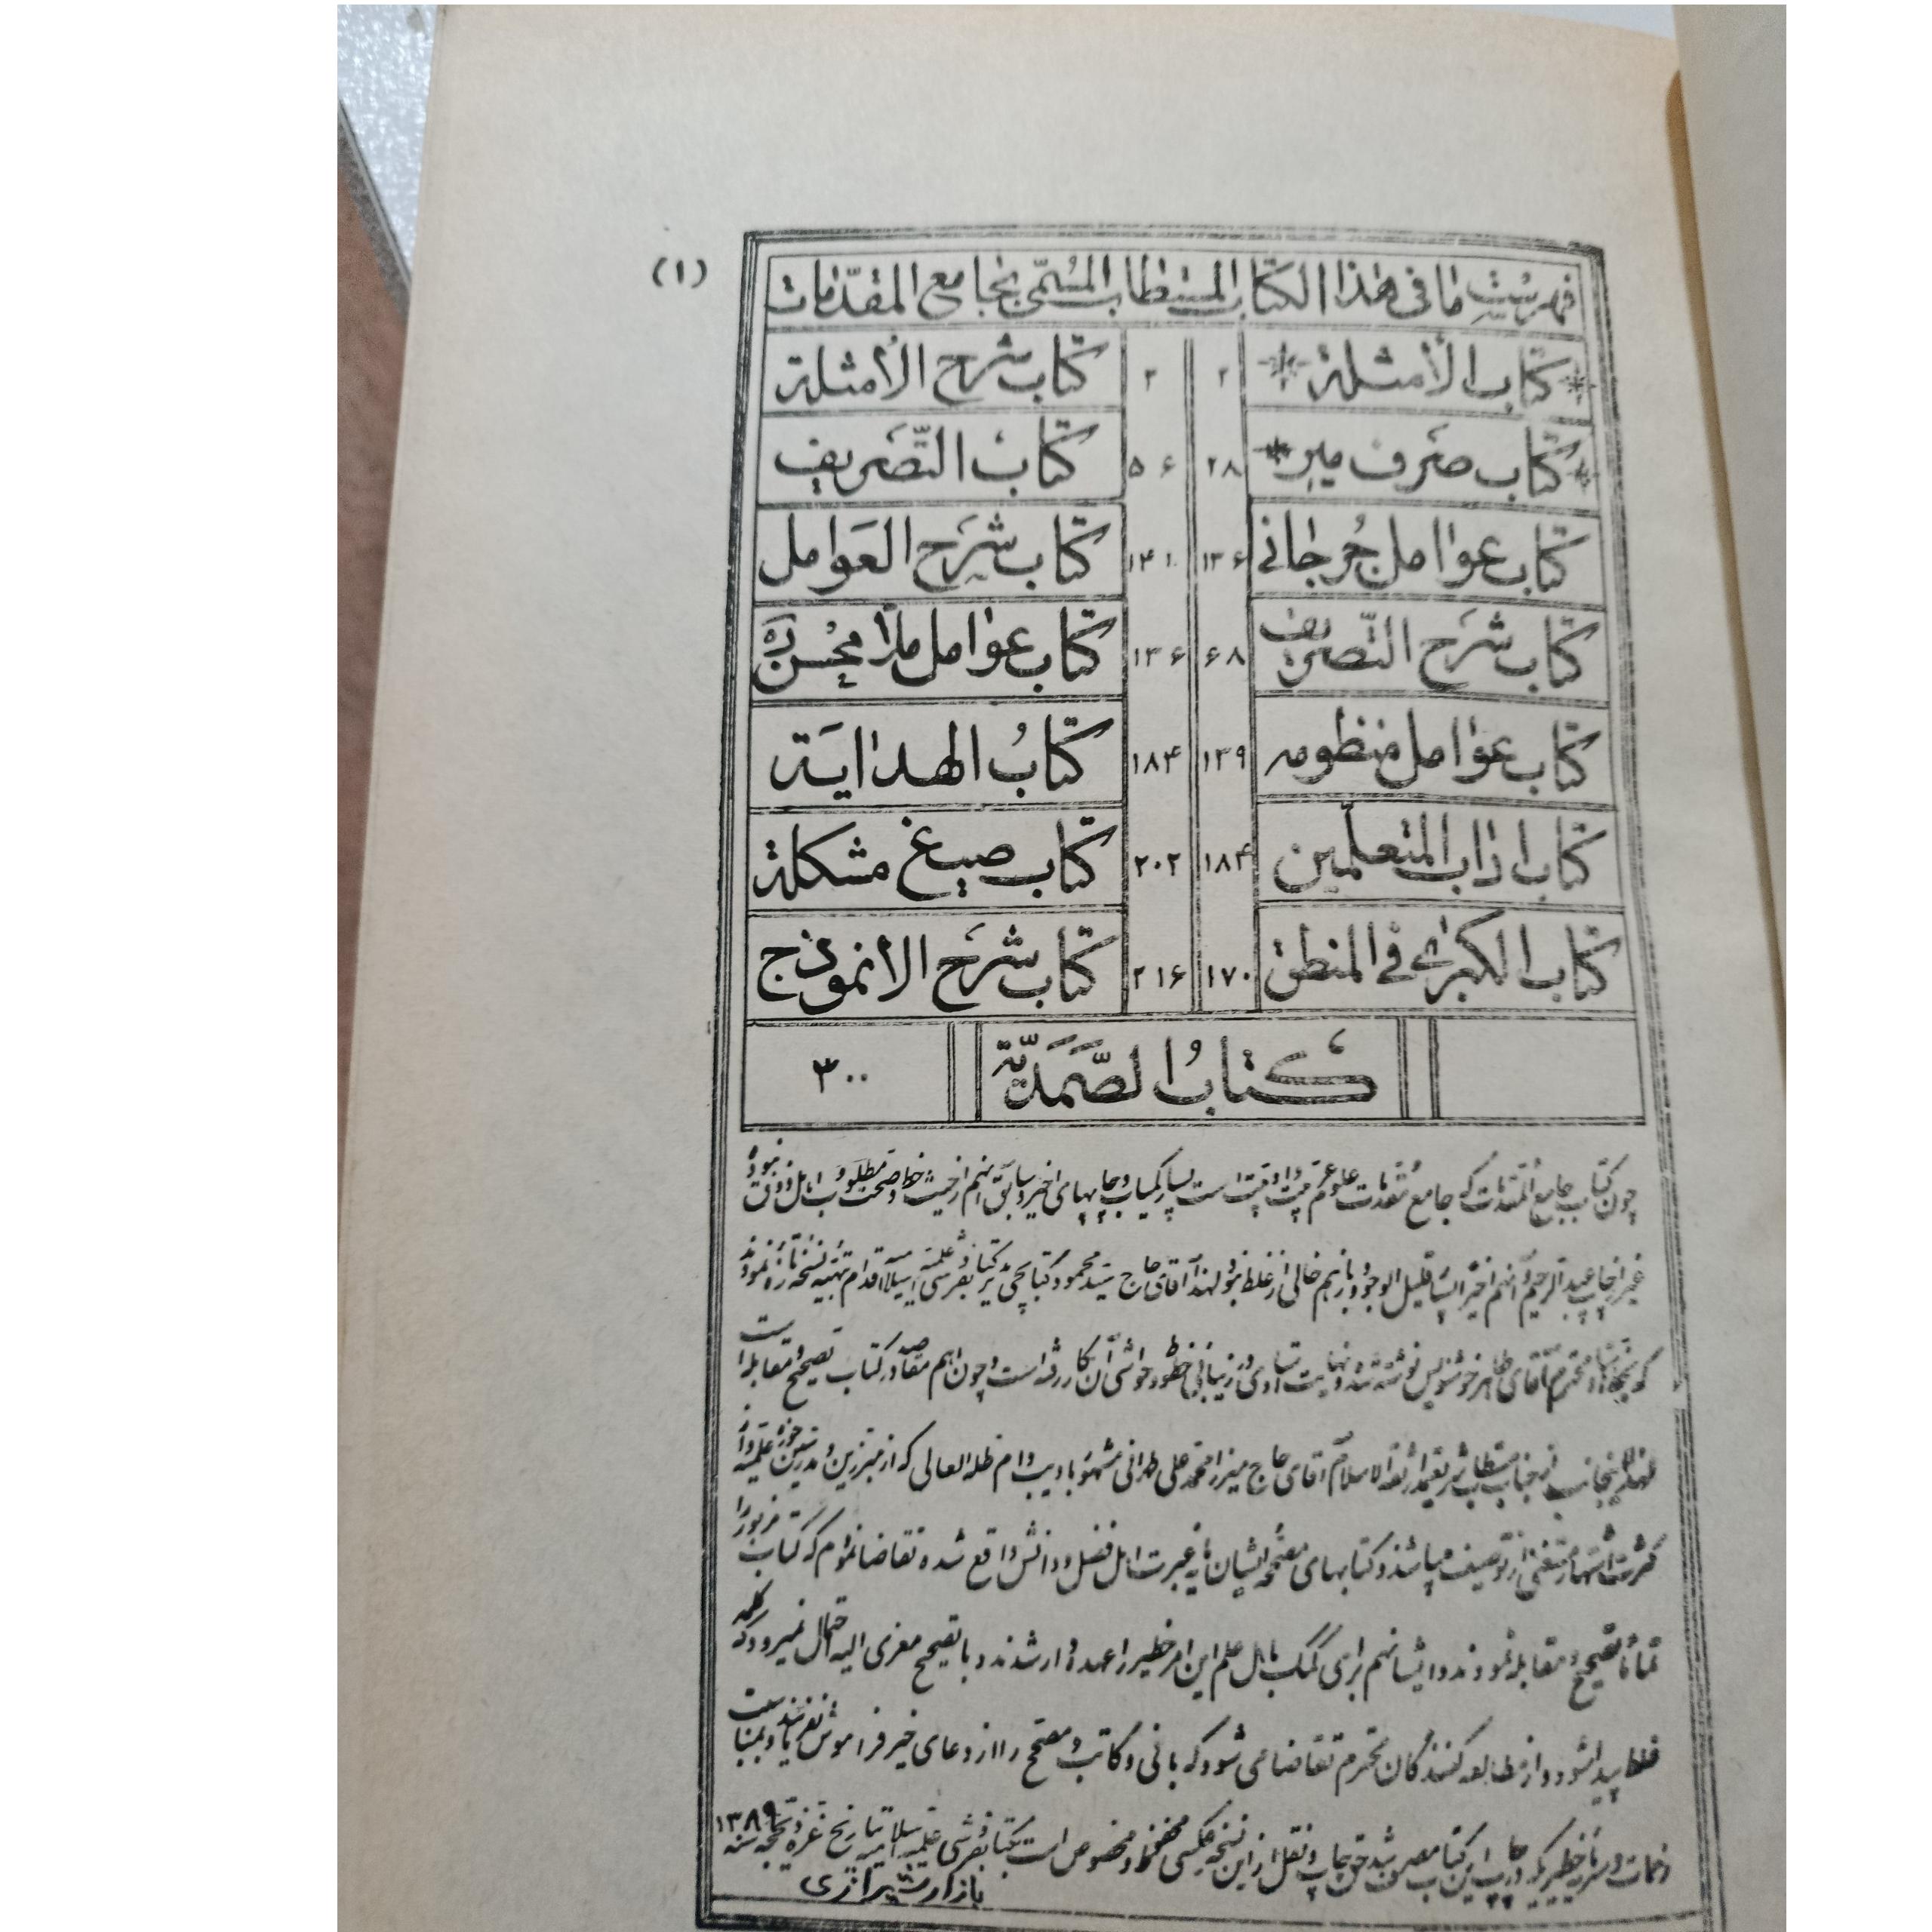 (۱)
فهرست ما فی هذا الکتاب المستطاب المسمّی بجامع المقدّمات
کتاب الأمثلة ۲
۲ کتاب شرح الأمثلة
کتاب صرف میر ۲۸
۵۶ کتاب التّصریف
کتاب عوامل جُرجانی ۱۳۶
۱۴۱ کتاب شرح العوامل
کتاب شرح التّصریف ۶۸
۱۳۶ کتاب عوامل ملّا محسن ره
کتاب عوامل منظومه ۱۳۹
۱۸۴ کتابُ الهدایة
کتاب اداب المتعلّمین ۱۸۴
۲۰۲ کتاب صیغ مشکلة
کتاب الکبری فی المنطق ۱۷۰
۲۱۶ کتاب شرح الانموذج
کتابُ الصَّمَدیّة ۳۰۰
چون کتاب جامع المقدمات که جامع مقدمات علوم عربیت و ادبیت است بسیار کمیاب و چاپهای اخیر و سابق آنهم از حیث خط و صحت مطلوب اهل ذوق نبوده
غیر از چاپ عبدالرحیم و آنهم اخیرا بسیار قلیل الوجود و بازهم خالی از غلط نبود لهذا آقای حاج سید محمود کتابچی مدیر کتابفروشی علمیه اسلامیه اقدام بتهیه نسخه تازه نمودند
که بخط استاد محترم آقای طاهر خوشنویس نوشته شده و نهایت استادی در زیبائی خط و حواشی آن کار رفته است و چون اهم مقاصد در کتاب تصحیح و مقابله است
لهذا اینجانب از جناب مستطاب شریعتمدار ثقة الاسلام آقای حاج میرزا محمد علی طهرانی مشهور بادیب دام ظله العالی که از مبرزین و مدرسین حوزه علمیه و از
کثرت اشتهار مستغنی از توصیف میباشند و کتابهای مصححه ایشان مایه عبرت اهل فضل و دانش واقع شده تقاضا نمودم که کتاب مزبور را
تماماً تصحیح و مقابله نمودند و ایشانهم برای کمک باهل علم این امر خطیر را عهده دار شدند و با تصحیح معزی الیه احتمال نمیرود که کلمه
غلط پیدا شود و از مطالعه کنندگان محترم تقاضا می شود که بانی و کاتب و مصحح را از دعای خیر فراموش نفرمایند و بمناسبت
زحمات و سرمایه خطیر که در چاپ این کتاب مصروف شد حق چاپ و نقل از این نسخه عکسی محفوظ و مخصوص است بکتابفروشی علمیه اسلامیه بتاریخ غره ذیحجه سنه ۱۳۸۹
بازار شیرازی